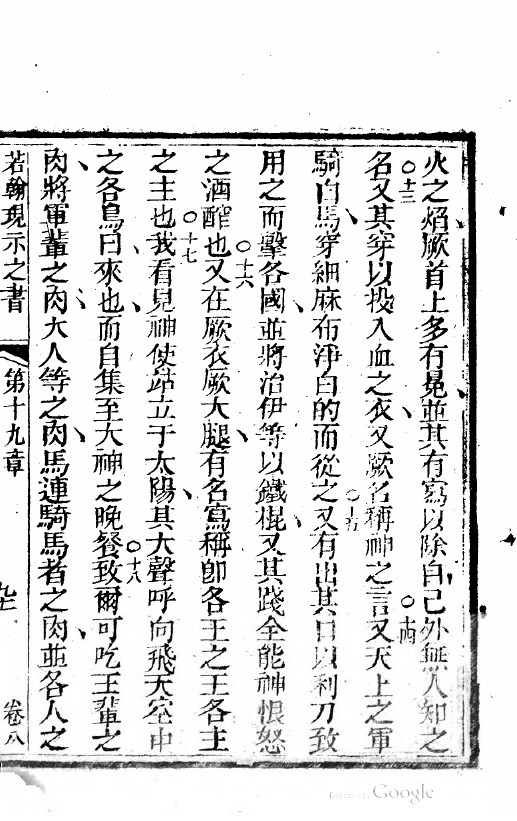 火之焰厥首上多有冕並其有寫以除自己外無人知之
名○十三又其穿以投入血之衣又厥名稱神之言○十四又天上之軍
騎白馬穿細麻布淨白的而從之○十五又有出其口以利刀致
用之而擊各國並將治伊等以鐵棍又其踐全能神恨怒
之酒醡也○十六又在厥衣厥大腿有名寫稱卽各王之王各主
之主也○十七我看見神使站立于太陽其大聲呼向飛天空中
之各鳥曰來也而自集至大神之晚餐○十八致爾可吃王輩之
肉將軍輩之肉大人等之肉馬連騎馬者之肉並各人之
若翰現示之書 第十九章 九三 卷八
Digitized by Google